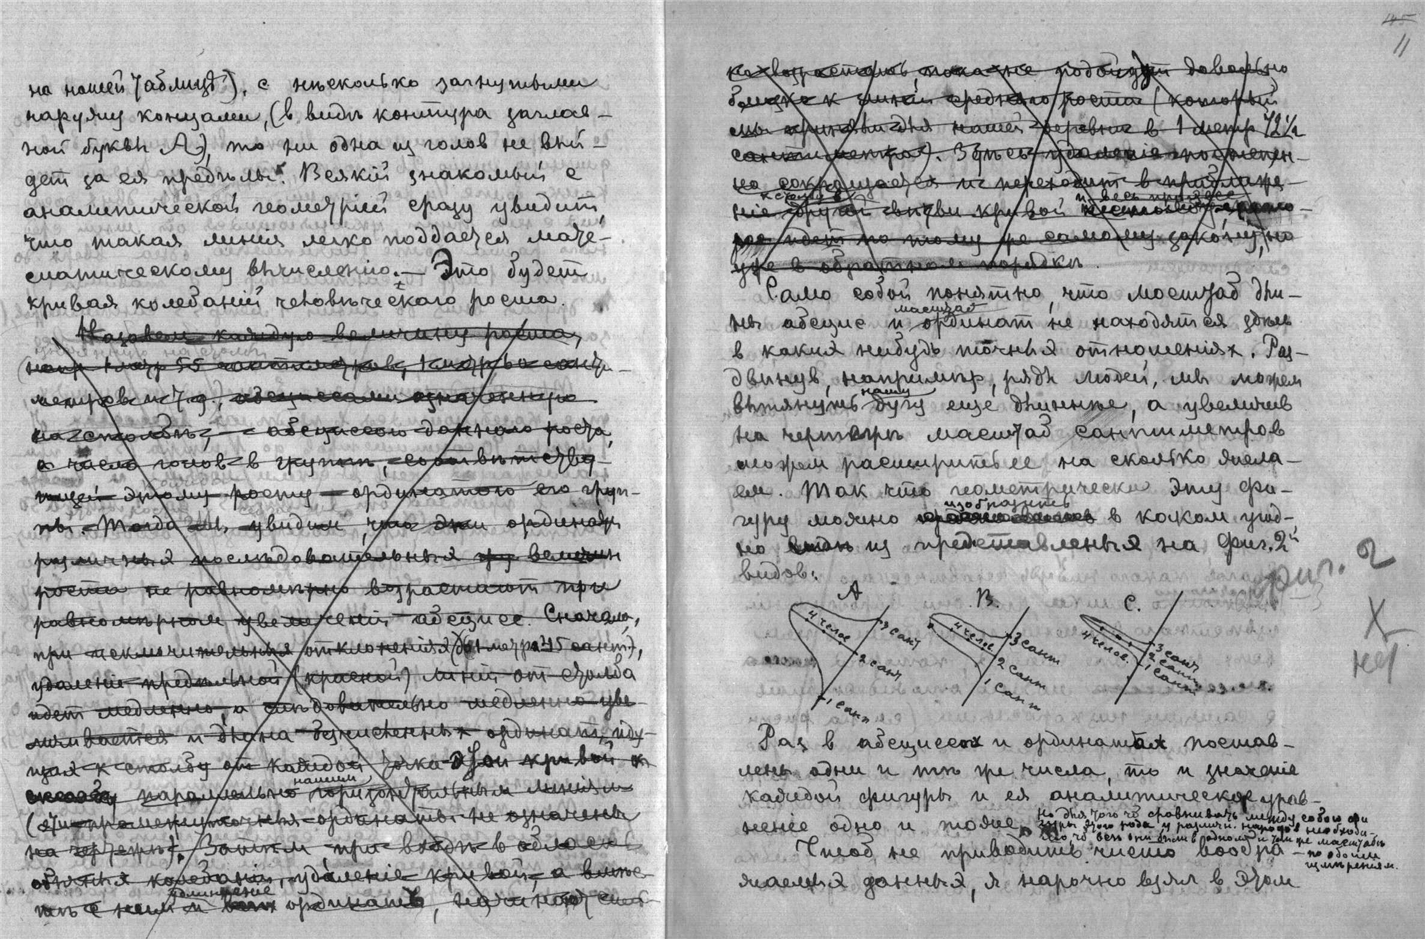 на нашей таблицѣ), с нѣсколько загнутыми
наружу концами, (в видѣ контура заглав-
ной буквы А), то ни одна из голов не вый-
дет за ея предѣлы. Всякій знакомый с
аналитической геометріей сразу увидит,
что такая линия легко поддается мате-
матическому вычисленію. — Это будет
кривая колебаній человѣческаго роста.
Назовем каждую величину роста,
(напр. 1 метр 55 сантиметров, 1 метр санти-
метров и т. д.,
на столбѣ, — абсциссою даннаго роста,
а число голов в группѣ, соотвѣтствую-
щей этому росту — ординатою его груп-
пы. Тогда мы увидим, что эти ординаты
различныя послѣдовательныя величин
роста не равномѣрно возрастают при
равномѣрном увеличеніи абсцисс. Сначала,
при исключительных отклоненіях (1 метр 45 сант.),
удаленіе предѣльной (красной) линіи от столба
идет медленно, а слѣдовательно медленно уве-
личивается и длина безчисленных ординат, иду-
щих к столбу от каждой точки этой кривой
параллельно нашим горизонтальным линіям
(эти промежуточныя ординаты не означены
на чертежѣ). Затѣм при входѣ в область
обычных колебаній, удаленіе кривой, а вмѣс-
тѣ с ним и удлиненіе ординат,
11
возрастать, пока не подойдут довольно
близко к линіи средняго роста (который
мы приняли для нашей деревни в 1 метр 72½
сантиметра). Здѣсь удаленіе постепен-
но сокращается и переходит в приближе-
ніе к столбу другой вѣтви кривой и весь процесс
идет по тому же самому закону, но
уже в обратном порядкѣ.
Само собой понятно, что масштаб дли-
ны абсцисс и масштаб ординат не находятся здѣсь
в каких нибудь точных отношеніях. Раз-
двинув, напримѣр, ряды людей, мы можем
вытянуть нашу дугу еще длиннѣе, а увеличив
на чертежѣ масштаб сантиметров
можем расширить ее на сколько жела-
ем. Так что геометрически эту фи-
гуру можно изобразить в каком угод-
но из представленных на Фиг. 2й
видов:
фиг. 2
X
нет
А В. С.
4 челов. 3 сант 2 сант 1 сант
4 челов. 3 сант 2 сант 1 сант
4 челов. 3 сант 2 сант 1 сант
Раз в абсциссах и ординатах постав-
лены одни и тѣ же числа, то и значеніе
каждой фигуры и ея аналитическое урав-
неніе одно и тоже, но для того чтоб сравнивать между собою фи-
гуры этого рода у различн. народов необходи-
мо чтоб всѣ они были в одном и том же масштабѣ
по обоим
измѣреніям.
Чтоб не приводить чисто вообра-
жаемыя данныя, я нарочно взял в этом